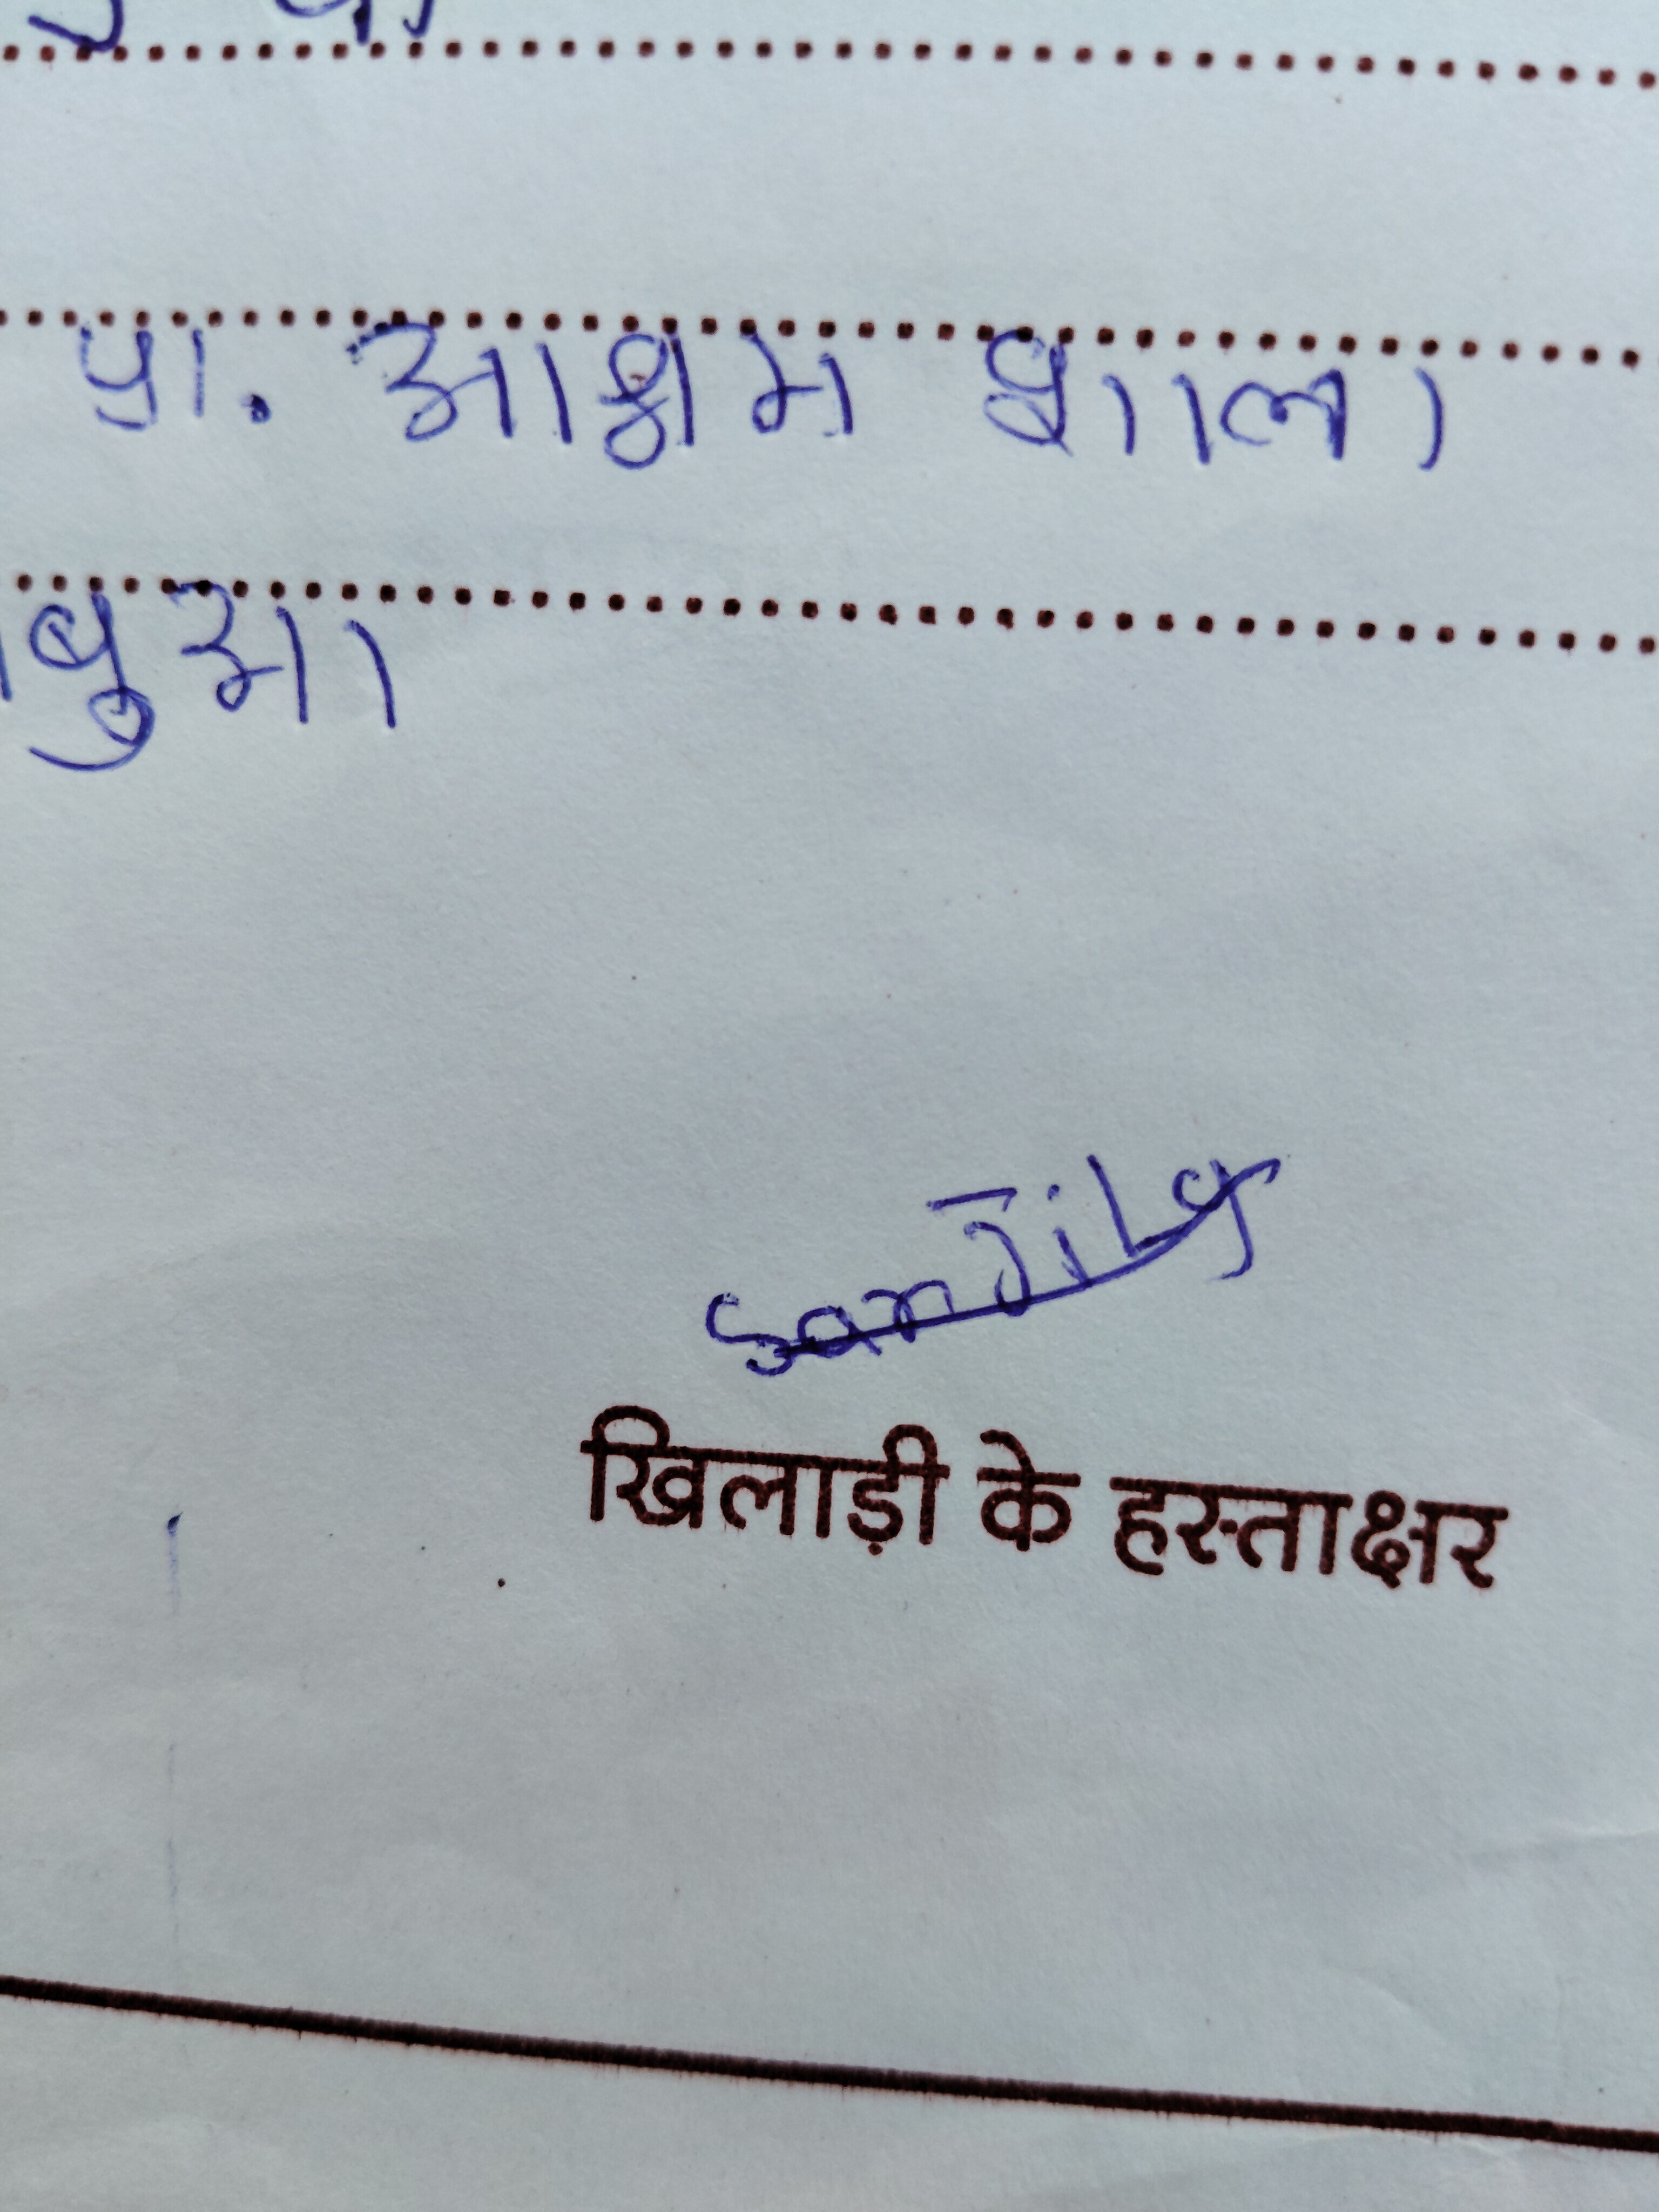 प्रा. आश्रम शाला
बुआ
sanjila
खिलाड़ी के हस्ताक्षर